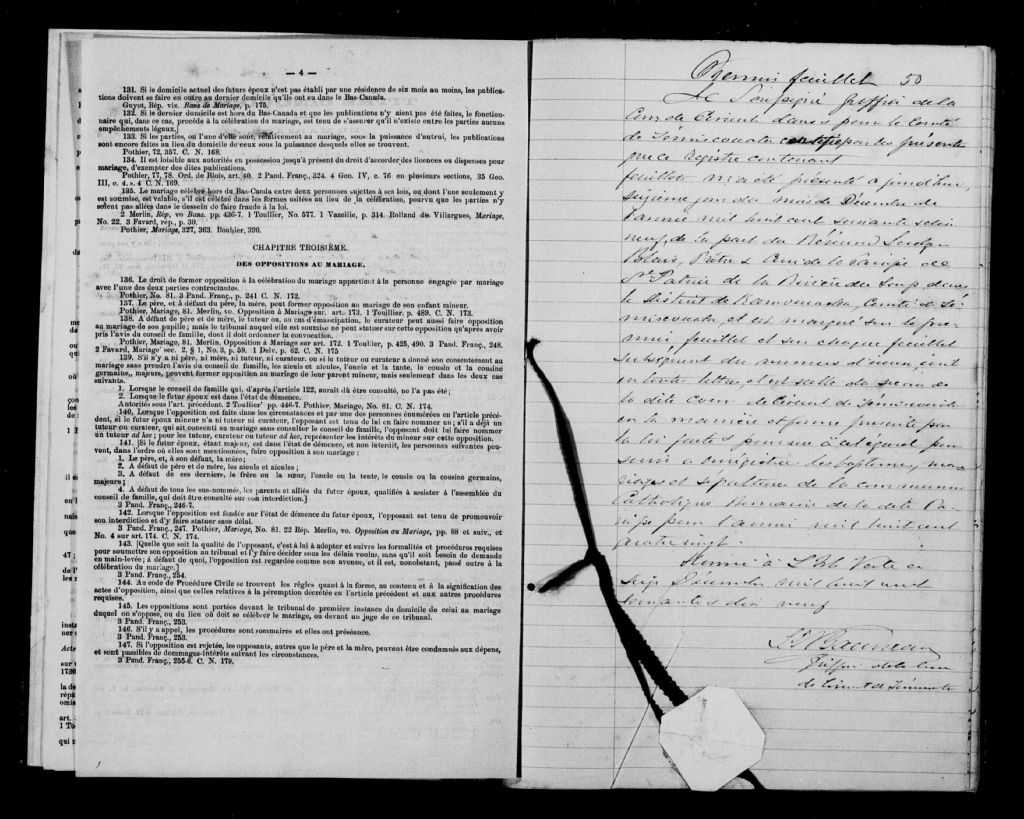 — 4 —
131. Si le domicile actuel des futurs époux n'est pas établi par une résidence de six mois au moins, les publica-
tions doivent se faire en outre au dernier domicile qu'ils ont eu dans le Bas-Canada.
Guyot, Rép. vis. Bans de Mariage, p. 175.
132. Si le dernier domicile est hors du Bas-Canada et que les publications n'y aient pas été faites, le fonction-
naire qui, dans ce cas, procède à la célébration du mariage, est tenu de s'assurer qu'il n'existe entre les parties aucuns
empêchements légaux.]
133. Si les parties, ou l'une d'elle sont, relativement au mariage, sous la puissance d'autrui, les publications
sont encore faites au lieu du domicile de ceux sous la puissance desquels elles se trouvent.
Pothier, 72, 357. C. N. 168.
134. Il est loisible aux autorités en possession jusqu'à présent du droit d'accorder des licences ou dispenses pour
mariage, d'exempter des dites publications.
Pothier, 77, 78. Ord. de Blois, art. 40. 2 Pand. Franç., 324. 4 Geo. IV, c. 76 en plusieurs sections, 35 Geo.
III, c. 4. s. 4 C. N. 169.
135. Le mariage célébré hors du Bas-Canda entre deux personnes sujettes à ses lois, ou dont l'une seulement y
est soumise, est valable, s'il est célébré dans les formes usitées au lieu de la célébration, pourvu que les parties n'y
soient pas allées dans le dessein de faire fraude à la loi.
2 Merlin, Rép, vo Bans. pp. 436-7. 1 Toullier, No. 577. 1 Vazeille, p. 314. Rolland de Villargues, Mariage,
No. 22. 3 Favard, rép., p. 30.
Pothier, Mariage, 327, 363. Bouhier, 390.
CHAPITRE TROISIÈME.
DES OPPOSITIONS AU MARIAGE.
136. Le droit de former opposition à la célébration du mariage appartient à la personne engagée par mariage
avec l'une des deux parties contractantes.
Pothier, No. 81. 3 Pand. Franç., p. 241 C. N. 172.
137. Le père, et à défaut du père, la mère, peut former opposition au mariage de son enfant mineur.
Pothier, Mariage, 81. Merlin, vo. Opposition à Mariage sur. art. 173. 1 Toullier. p. 489. C. N. 173.
138. A défaut de père et de mère, le tuteur ou, au cas d'émancipation, le curateur peut aussi faire opposition
au mariage de son pupille; mais le tribunal auquel elle est soumise ne peut statuer sur cette opposition qu'après avoir
pris l'avis du conseil de famille, dont il doit ordonner la convocation.
Pothier, Mariage, 81, Merlin, vo. Opposition à Mariage sur art. 172. 1 Toullier, p. 425, 490. 3 Pand. Franç., 248.
2 Favard, Mariage' sec. 2, § 1, No. 3, p. 59. 1 Delv. p. 62. C. N. 175
139. S'il n'y a ni père, ni mère, ni tuteur, ni curateur, ou si le tuteur ou curateur a donné son consentement au
mariage sans prendre l'avis du conseil de famille, les aieuls et aieules, l'oncle et la tante, le cousin et la cousine
germains, majeurs, peuvent former opposition au mariage de leur parent mineur, mais seulement dans les deux cas
suivants.
1. Lorsque le conseil de famille qui, d'après l'article 122, aurait dû être consulté, ne l'a pas été;
2. Lorsque le futur époux est dans l'état de démence.
Autorités sous l'art. précédent. 2 Toullier' pp. 446-7. Pothier, Mariage, No. 81. C. N. 174.
140, Lorsque l'opposition est faite dans les circonstances et par une des personnes énumérées en l'article précé-
dent, si le futur époux mineur n'a ni tuteur ni curateur, l'opposant est tenu de lui en faire nommer un; s'il a déjà un
tuteur ou curateur, qui ait consenti au mariage sans consulter le conseil de famille, l'opposant doit lui faire nommer
un tuteur ad hoc; pour les tuteur, curateur ou tuteur ad hoc, représenter les intérêts du mineur sur cette opposition.
141. [Si le futur époux, étant majeur, est dans l'état de démence, et non interdit, les personnes suivantes peu-
vent, dans l'ordre où elles sont mentionnées, faire opposition à son mariage :
1. Le père, et, à son défaut, la mère;
2. A défaut de père et de mère, les aieuls et aieules;
3. A défaut de ces derniers, le frère ou la sœur, l'oncle ou la tante, le cousin ou la cousine germains,
majeurs;
4. A défaut de tous les sus-nommés, les parents et alliés du futur époux, qualifiés à assister à l'assemblée du
conseil de famille, qui doit être consulté sur son interdiction.]
3 Pand. Franç., 246-7.
142. Lorsque l'opposition est fondée sur l'état de démence du futur époux, l'opposant est tenu de promouvoir
son interdiction et d'y faire statuer sans délai.
3 Pand. Franç., 247. Pothier, Mariage, No. 81. 22 Rép. Merlin, vo. Opposition au Mariage, pp. 88 et suiv., et
No. 4 sur art. 174. C. N. 174.
143. [Quelle que soit la qualité de l'opposant, c'est à lui à adopter et suivre les formalités et procédures requises
pour soumettre son opposition au tribunal et l'y faire décider sous les délais voulus, sans qu'il soit besoin de demande
en main-levée; à défaut de quoi, l'opposition est regardée comme non avenue, et il est, nonobstant, passé outre à la
célébration du mariage.]
3 Pand. Franç., 254.
144. Au code de Procédure Civile se trouvent les règles quant à la forme, au contenu et à la signification des
actes d'opposition, ainsi que celles relatives à la péremption décrétée en l'article précédent et aux autres procédures
requises.
145. Les oppositions sont portées devant le tribunal de première instance du domicile de celui au mariage
duquel on s'oppose, ou du lieu où doit se célébrer le mariage, ou devant un juge de ce tribunal.
3 Pand. Franç., 253.
146. S'il y a appel, les procédures sont sommaires et elles ont préséance.
3 Pand. Franç., 253.
147. Si l'opposition est rejetée, les opposants, autres que le père et la mère, peuvent être condamnés aux dépens,
et sont passibles de dommages-intérêts suivant les circonstances.
3 Pand. Franç., 255-6. C. N. 179.
Premier feuillet 50
Je Soussigné Greffier de la
Cour de Circuit dans & pour le Comté
de Témiscouata certifie par les présentes
que ce Registre contenant
feuillets m'a été présenté aujourd'hui,
sixième jour du mois de Décembre de
l'année mil huit cent soixante et dix
neuf, de la part du Révérend
Blais, Prêtre & Curé de la Paroisse de
St Patrice de la Rivière du Loup dans
le District de Kamouraska, Comté de Té-
miscouata, et est marqué sur le pre-
mier feuillet et sur chaque feuillet
subséquent du numéro d'icelui écrit
en toute lettre, et est scellé du sceau de
la dite Cour de Circuit de Témiscouata
en la manière et forme prescrite par
la loi faite & pourvue à cet égard pour
servir à enregistrer les baptêmes, ma-
riages et sépultures de la communion
Catholique Romaine de la dite Pa-
roisse pour l'année mil huit cent
quatre vingt.
Donné à L'Isle Verte ce
six Décembre mil huit cent
soixante & dix neuf
Greffier de la Cour
de Circuit de Témiscouata